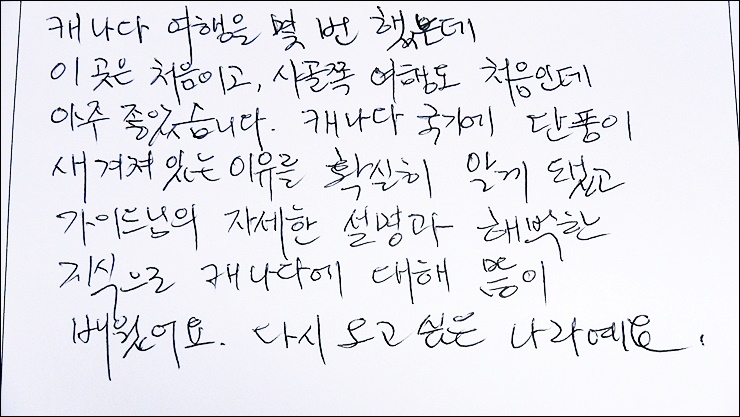 캐나다 여행을 몇 번 했는데
이 곳은 처음이고, 시골쪽 여행도 처음인데
아주 좋았습니다. 캐나다 국기에 단풍이
새겨져 있는 이유를 확실히 알게 됐고
가이드님의 자세한 설명과 해박한
지식으로 캐나다에 대해 많이
배웠어요. 다시 오고 싶은 나라예요.